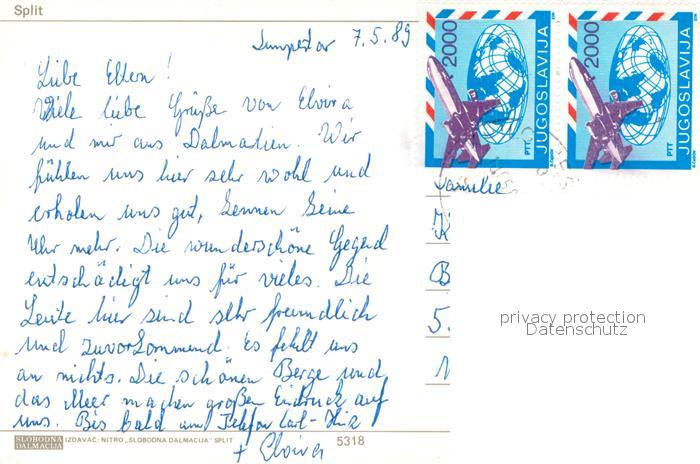 Split
7.5.89
Liebe Eltern!
Viele liebe Grüße von Elvira
und mir aus Dalmatien. Wir
fühlen uns hier sehr wohl und
erholen uns gut, kennen keine
Uhr mehr. Die wunderschöne Gegend
entschädigt uns für vieles. Die
Leute hier sind sehr freundlich
und zuvorkommend. Es fehlt uns
an nichts. Die schönen Berge und
das Meer machen großen Eindruck auf
uns. Bis bald am Telefon Carl-
+ Elvira
SLOBODNA
DALMACIJA
IZDAVAČ: NITRO „SLOBODNA DALMACIJA" SPLIT
5318
2000
JUGOSLAVIJA
PTT
2000
JUGOSLAVIJA
PTT
Familie
K
B
5.
privacy protection
Datenschutz